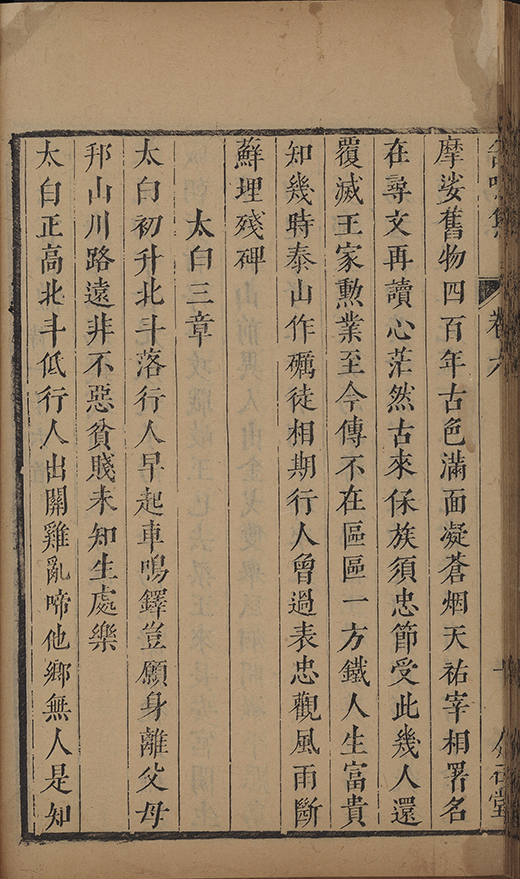 卷六
摩娑舊物四百年古色滿面凝蒼烟天祐宰相署名
在尋文再讀心茫然古來保族須忠節受此幾人還
覆滅王家勲業至今傳不在區區一方鐵人生富貴
知幾時泰山作礪徒相期行人曾過表忠觀風雨斷
蘚埋殘碑
太白三章
太白初升北斗落行人早起車鳴鐸豈願身離父母
邦山川路遠非不惡貧賤未知生處樂
太白正高北斗低行人出關雞亂啼他鄉無人是知